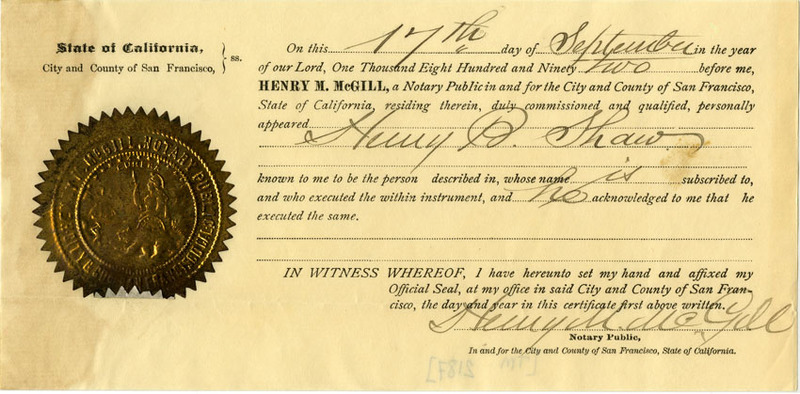 State of California,
City and County of San Francisco, } ss.
On this 17th day of September in the year
of our Lord, One Thousand Eight Hundred and Ninety two before me,
HENRY M. McGILL, a Notary Public in and for the City and County of San Francisco,
State of California, residing therein, duly commissioned and qualified, personally
appeared Henry B. Shaw
known to me to be the person described in, whose name is subscribed to,
and who executed the within instrument, and he acknowledged to me that he
executed the same.
IN WITNESS WHEREOF, I have hereunto set my hand and affixed my
Official Seal, at my office in said City and County of San Fran-
cisco, the day and year in this certificate first above written.
Henry M. McGill
Notary Public,
In and for the City and County of San Francisco, State of California.
McGILL NOTARY PUBLIC
2187]